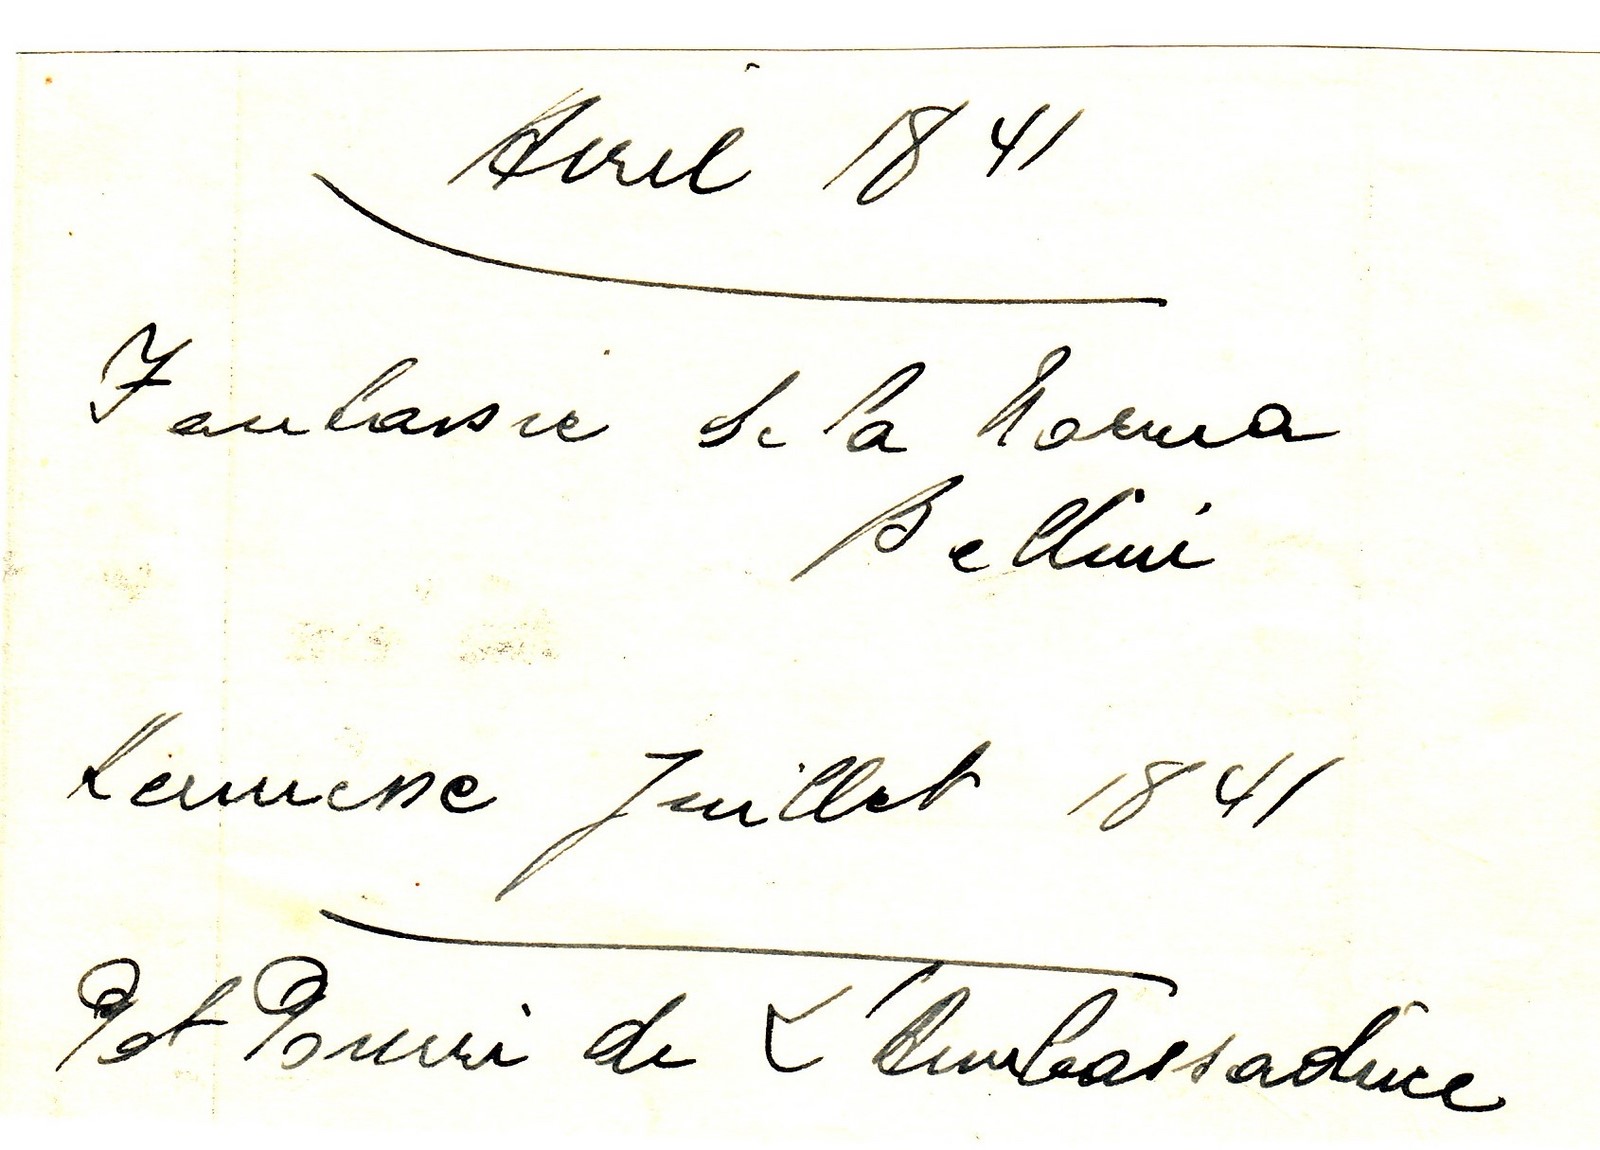 Avril 1841
Fantassie de la Norma
Bellini
Kermesse Juillet 1841
Pot Pourri de L'Ambassadrice